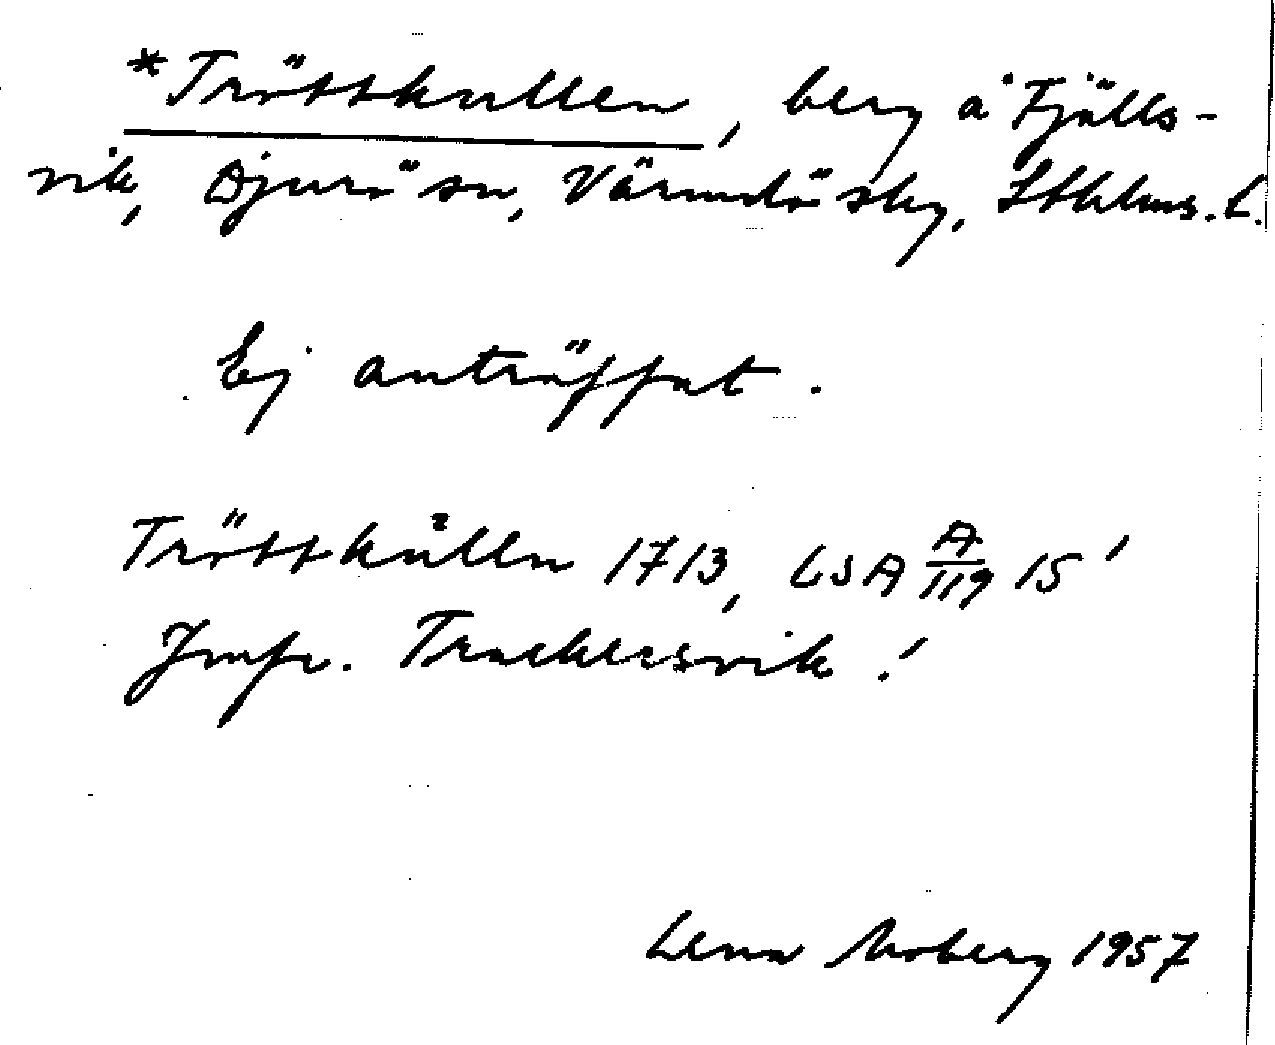 *Tröttkullen, berg å Fjälls-
vik, Djurö sn, Värmdö skg, Sthlms. l.
Ej anträffat.
Tröttkulln 1713, LSA A/119 15'
Jmfr. Trackersvik!
Lena Moberg 1957